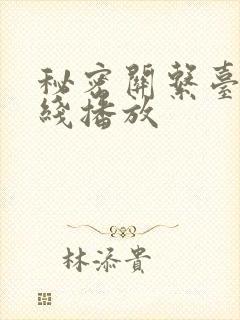 秘密關繫臺
綫播放
林添貴